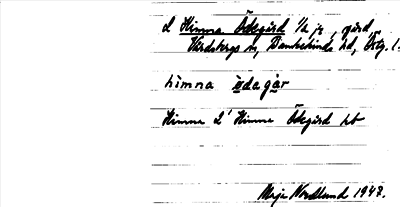 2 Himna Ödegård 1/2 js, gård,
Vårdsbergs sn, Bankekinds hd, Östg. l.
himna ödagår
Himna 2' Himna Ödegård ht
Maja Nordlund 1947.